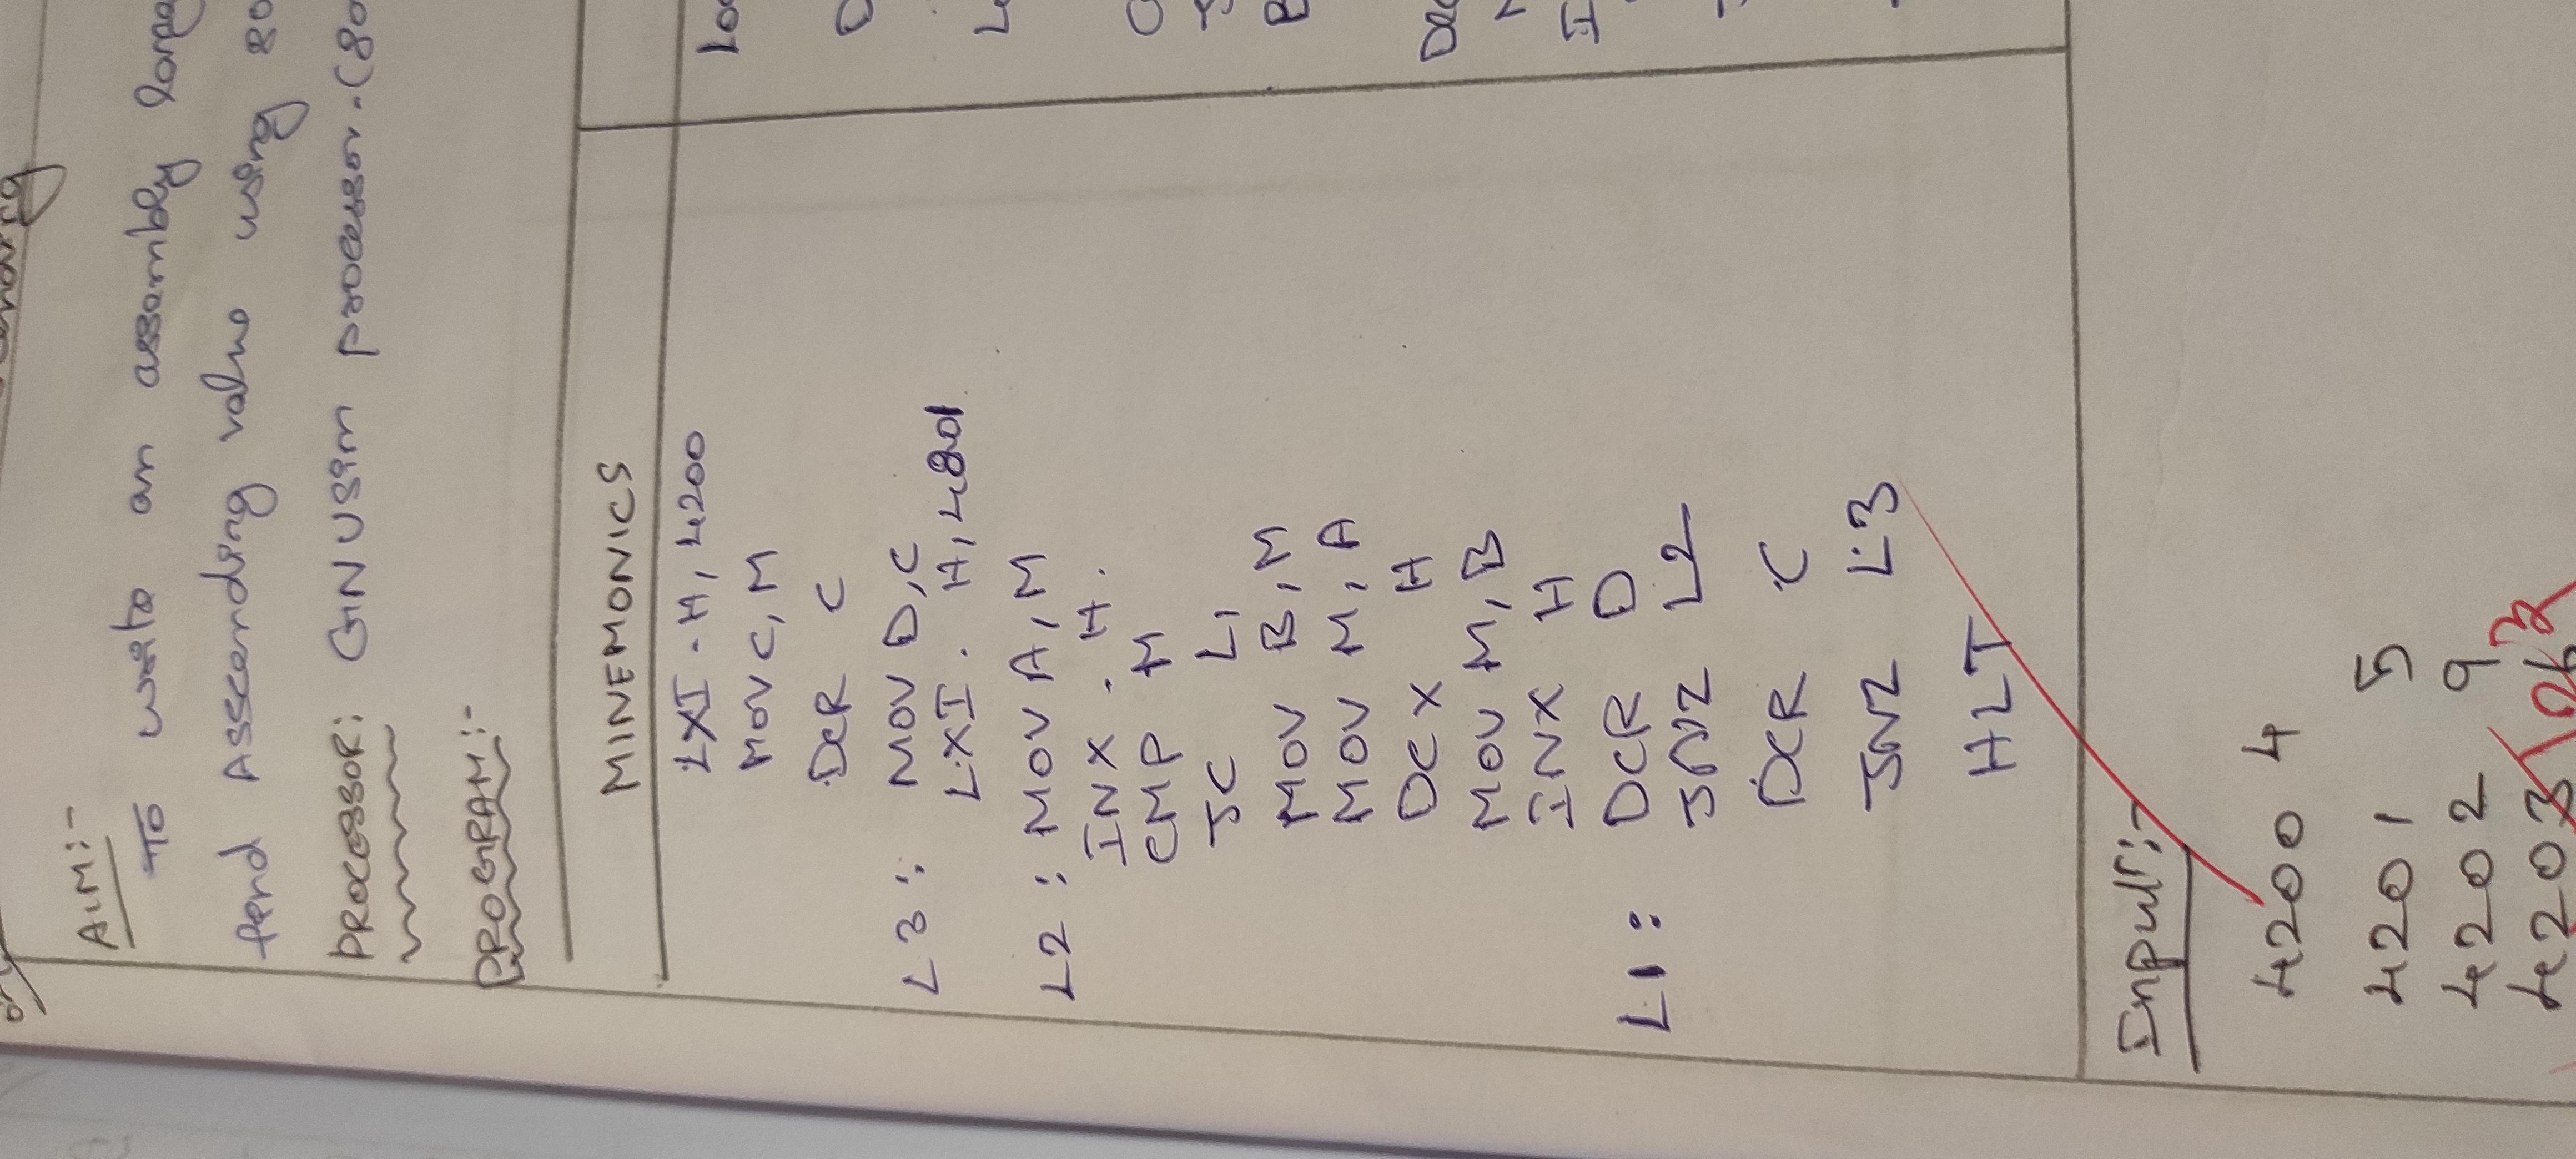 AIM:-
To write an assembly
fend Asscending value using 80
PROCESSOR: GNUSim processor.(80
PROGRAM:-
MINEMONICS
LXI - H, 4200
MOV C, M
DCR C
L3: MOV D,C
LXI. H, 4201
L2: MOV A, M
INX . H.
CMP M
JC L1
MOV B, M
MOV M, A
DCX H
MOV M, B
INX H
L1: DCR D
JNZ L2
DCR C
JNZ L3
HLT
Input:-
4200 4
4201 5
4202 9
4203